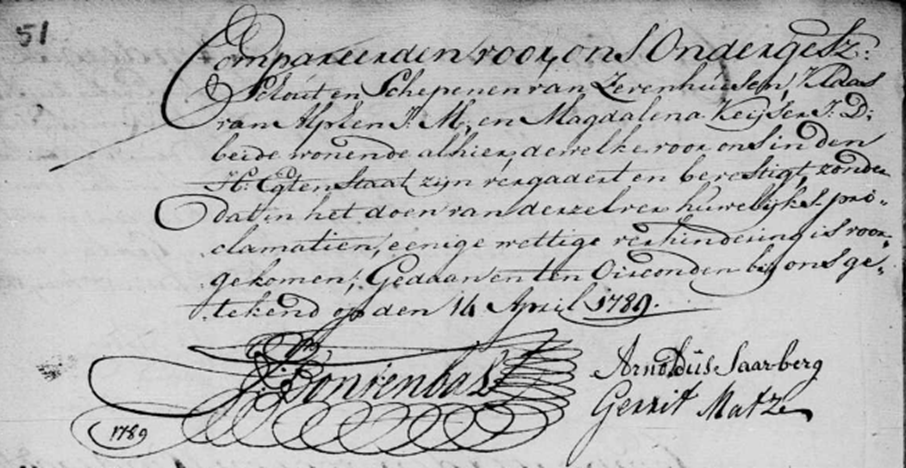 51
Compareerden voor ons Ondergesz:
Schout en Schepenen van Zevenhuisen, Klaas
van Alphen J: M: en Magdalena Keijser J: D:
beide wonende alhier, dewelke voor ons in den
H: Egten Staat zijn vergadert en bevestigt, zonder
dat in het doen van derzelver huwelijks pro-
clamatien, eenige wettige verhindering is voor-
gekomen; Gedaan en ten Oirconden bij ons ge-
tekend op den 14 April 1789.
Arnoldus Saarberg
Gerrit Matze
1789